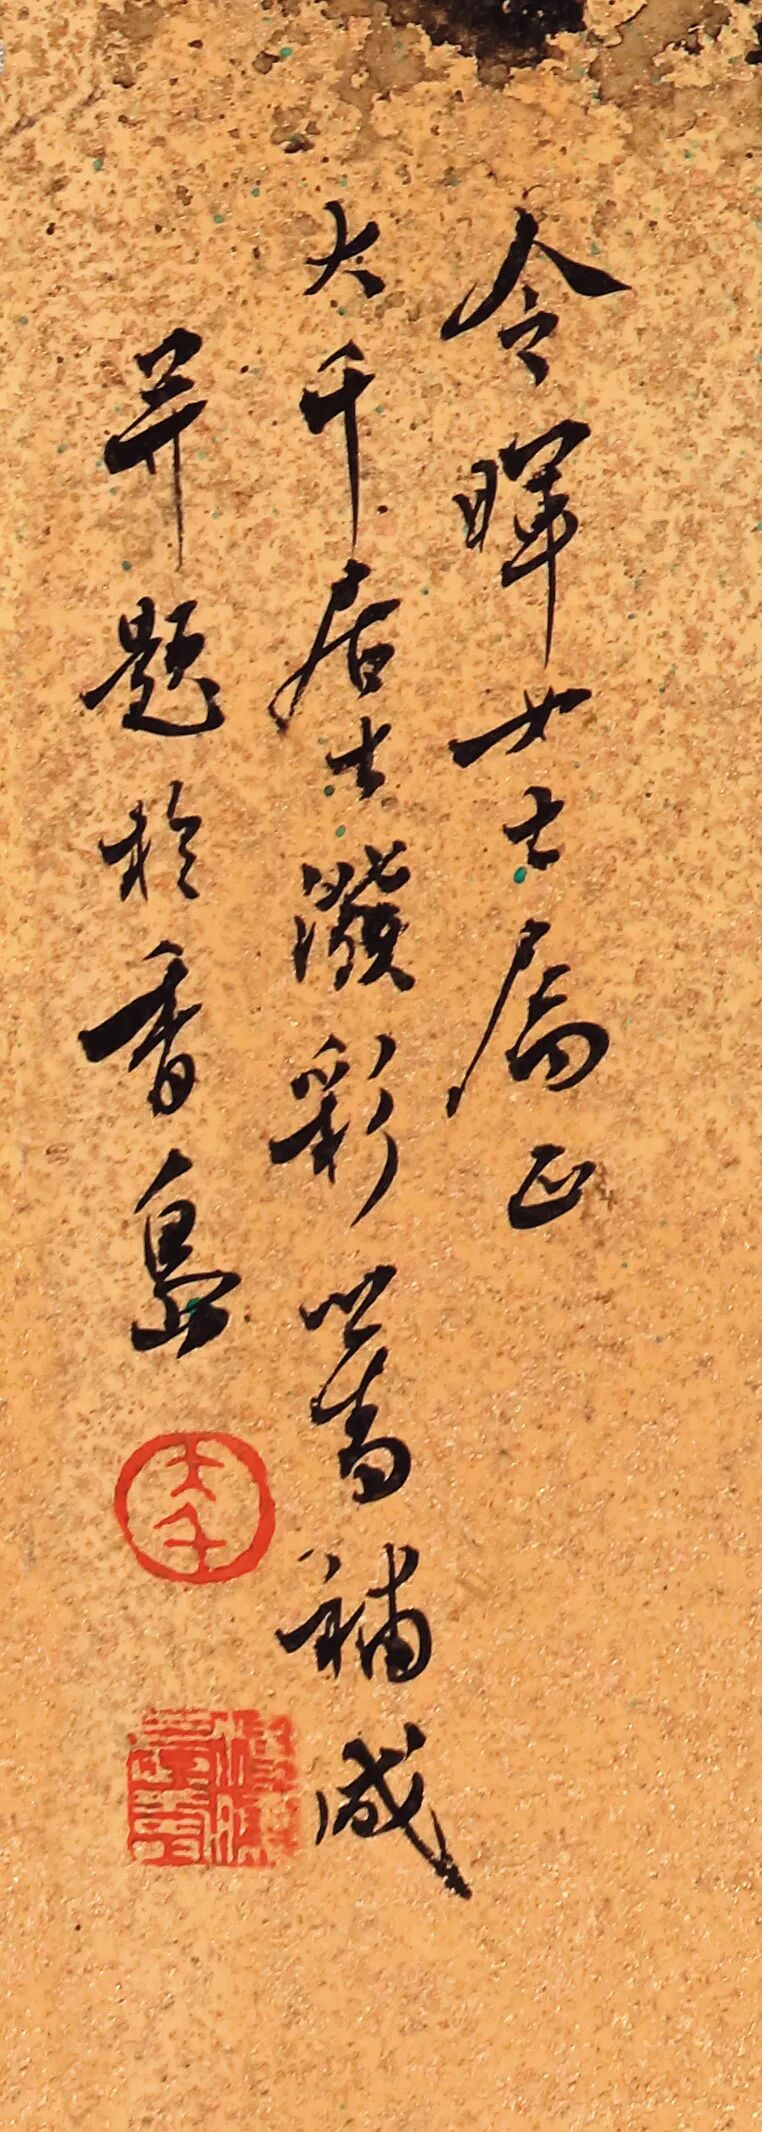 令暉女士屬正
大千居士潑彩心畬補成
并題於香島
大千